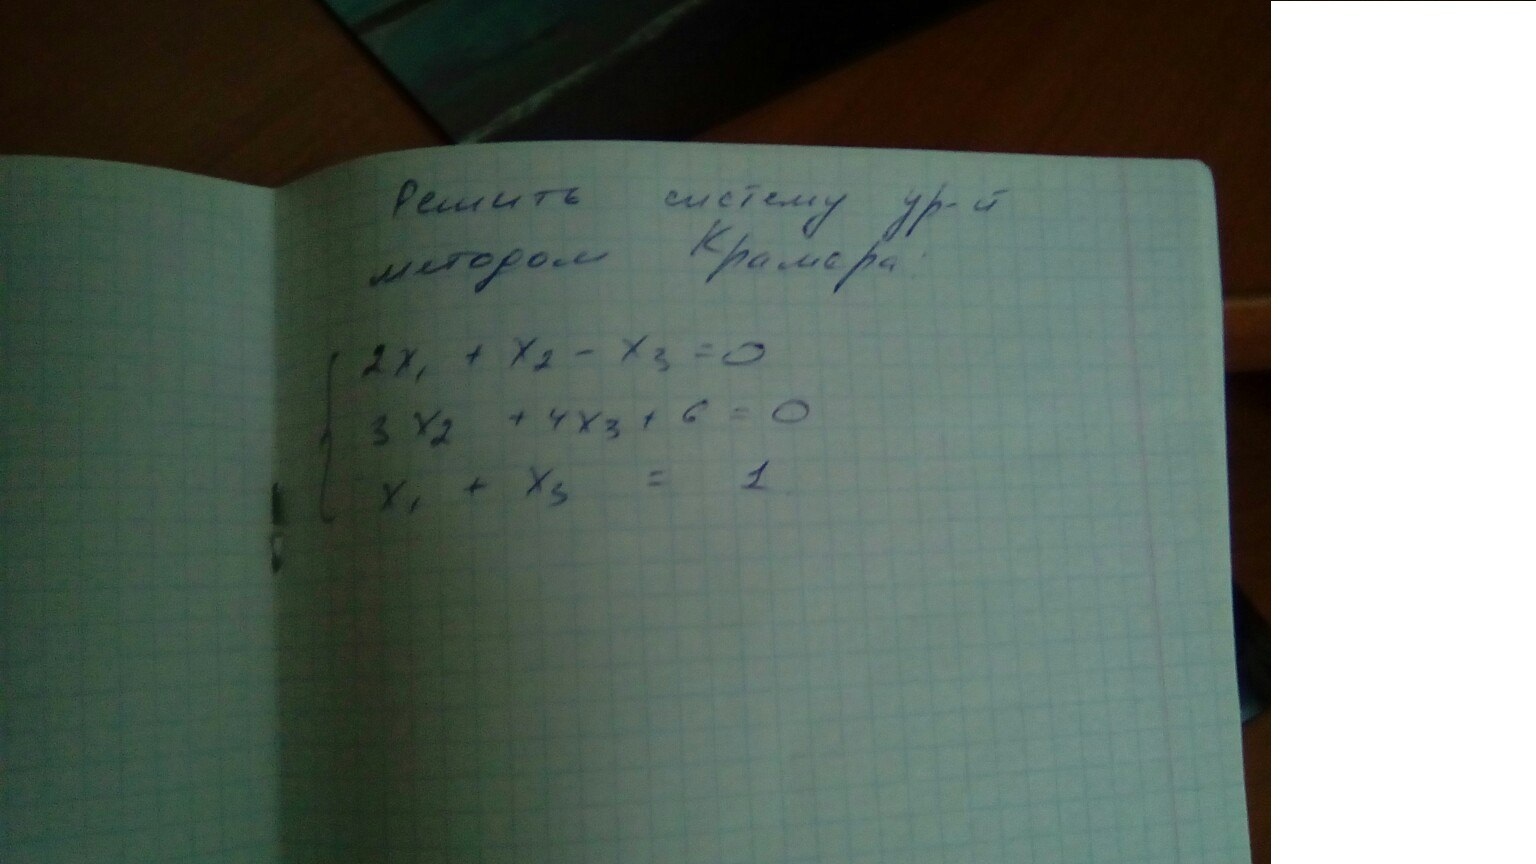 Решить систему ур-й
методом Крамера:
2x₁ + x₂ - x₃ = 0
3x₂ + 4x₃ + 6 = 0
x₁ + x₃ = 1